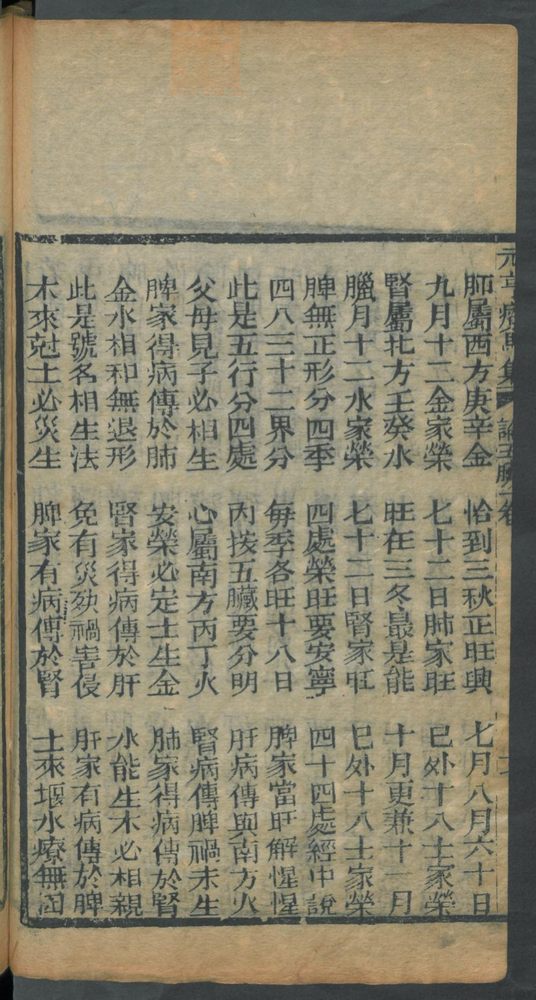 元亨療馬集 論五臟 卷
肺屬西方庚辛金 恰到三秋正旺興 七月八月六十日
九月十二金家榮 七十二日肺家旺 已外十八土家榮
腎屬北方壬癸水 旺在三冬最是能 十月更兼十一月
臘月十二水家榮 七十二日腎家旺 已外十八土家榮
脾無正形分四季 四處榮旺要安寧 四十四處經中說
四八三十二界分 每季各旺十八日 脾家當旺解惺惺
此是五行分四處 內按五臟要分明 肝病傳與南方火
父母見子必相生 心屬南方丙丁火 腎病傳脾禍未生
脾家得病傳於肺 安榮必定土生金 肺家得病傳於腎
金水相和無退形 腎家得病傳於肝 水能生木必相親
此是號名相生法 免有災殃禍害侵 肝家有病傳於脾
木來尅土必災生 脾家有病傳於腎 土來堰水療無因